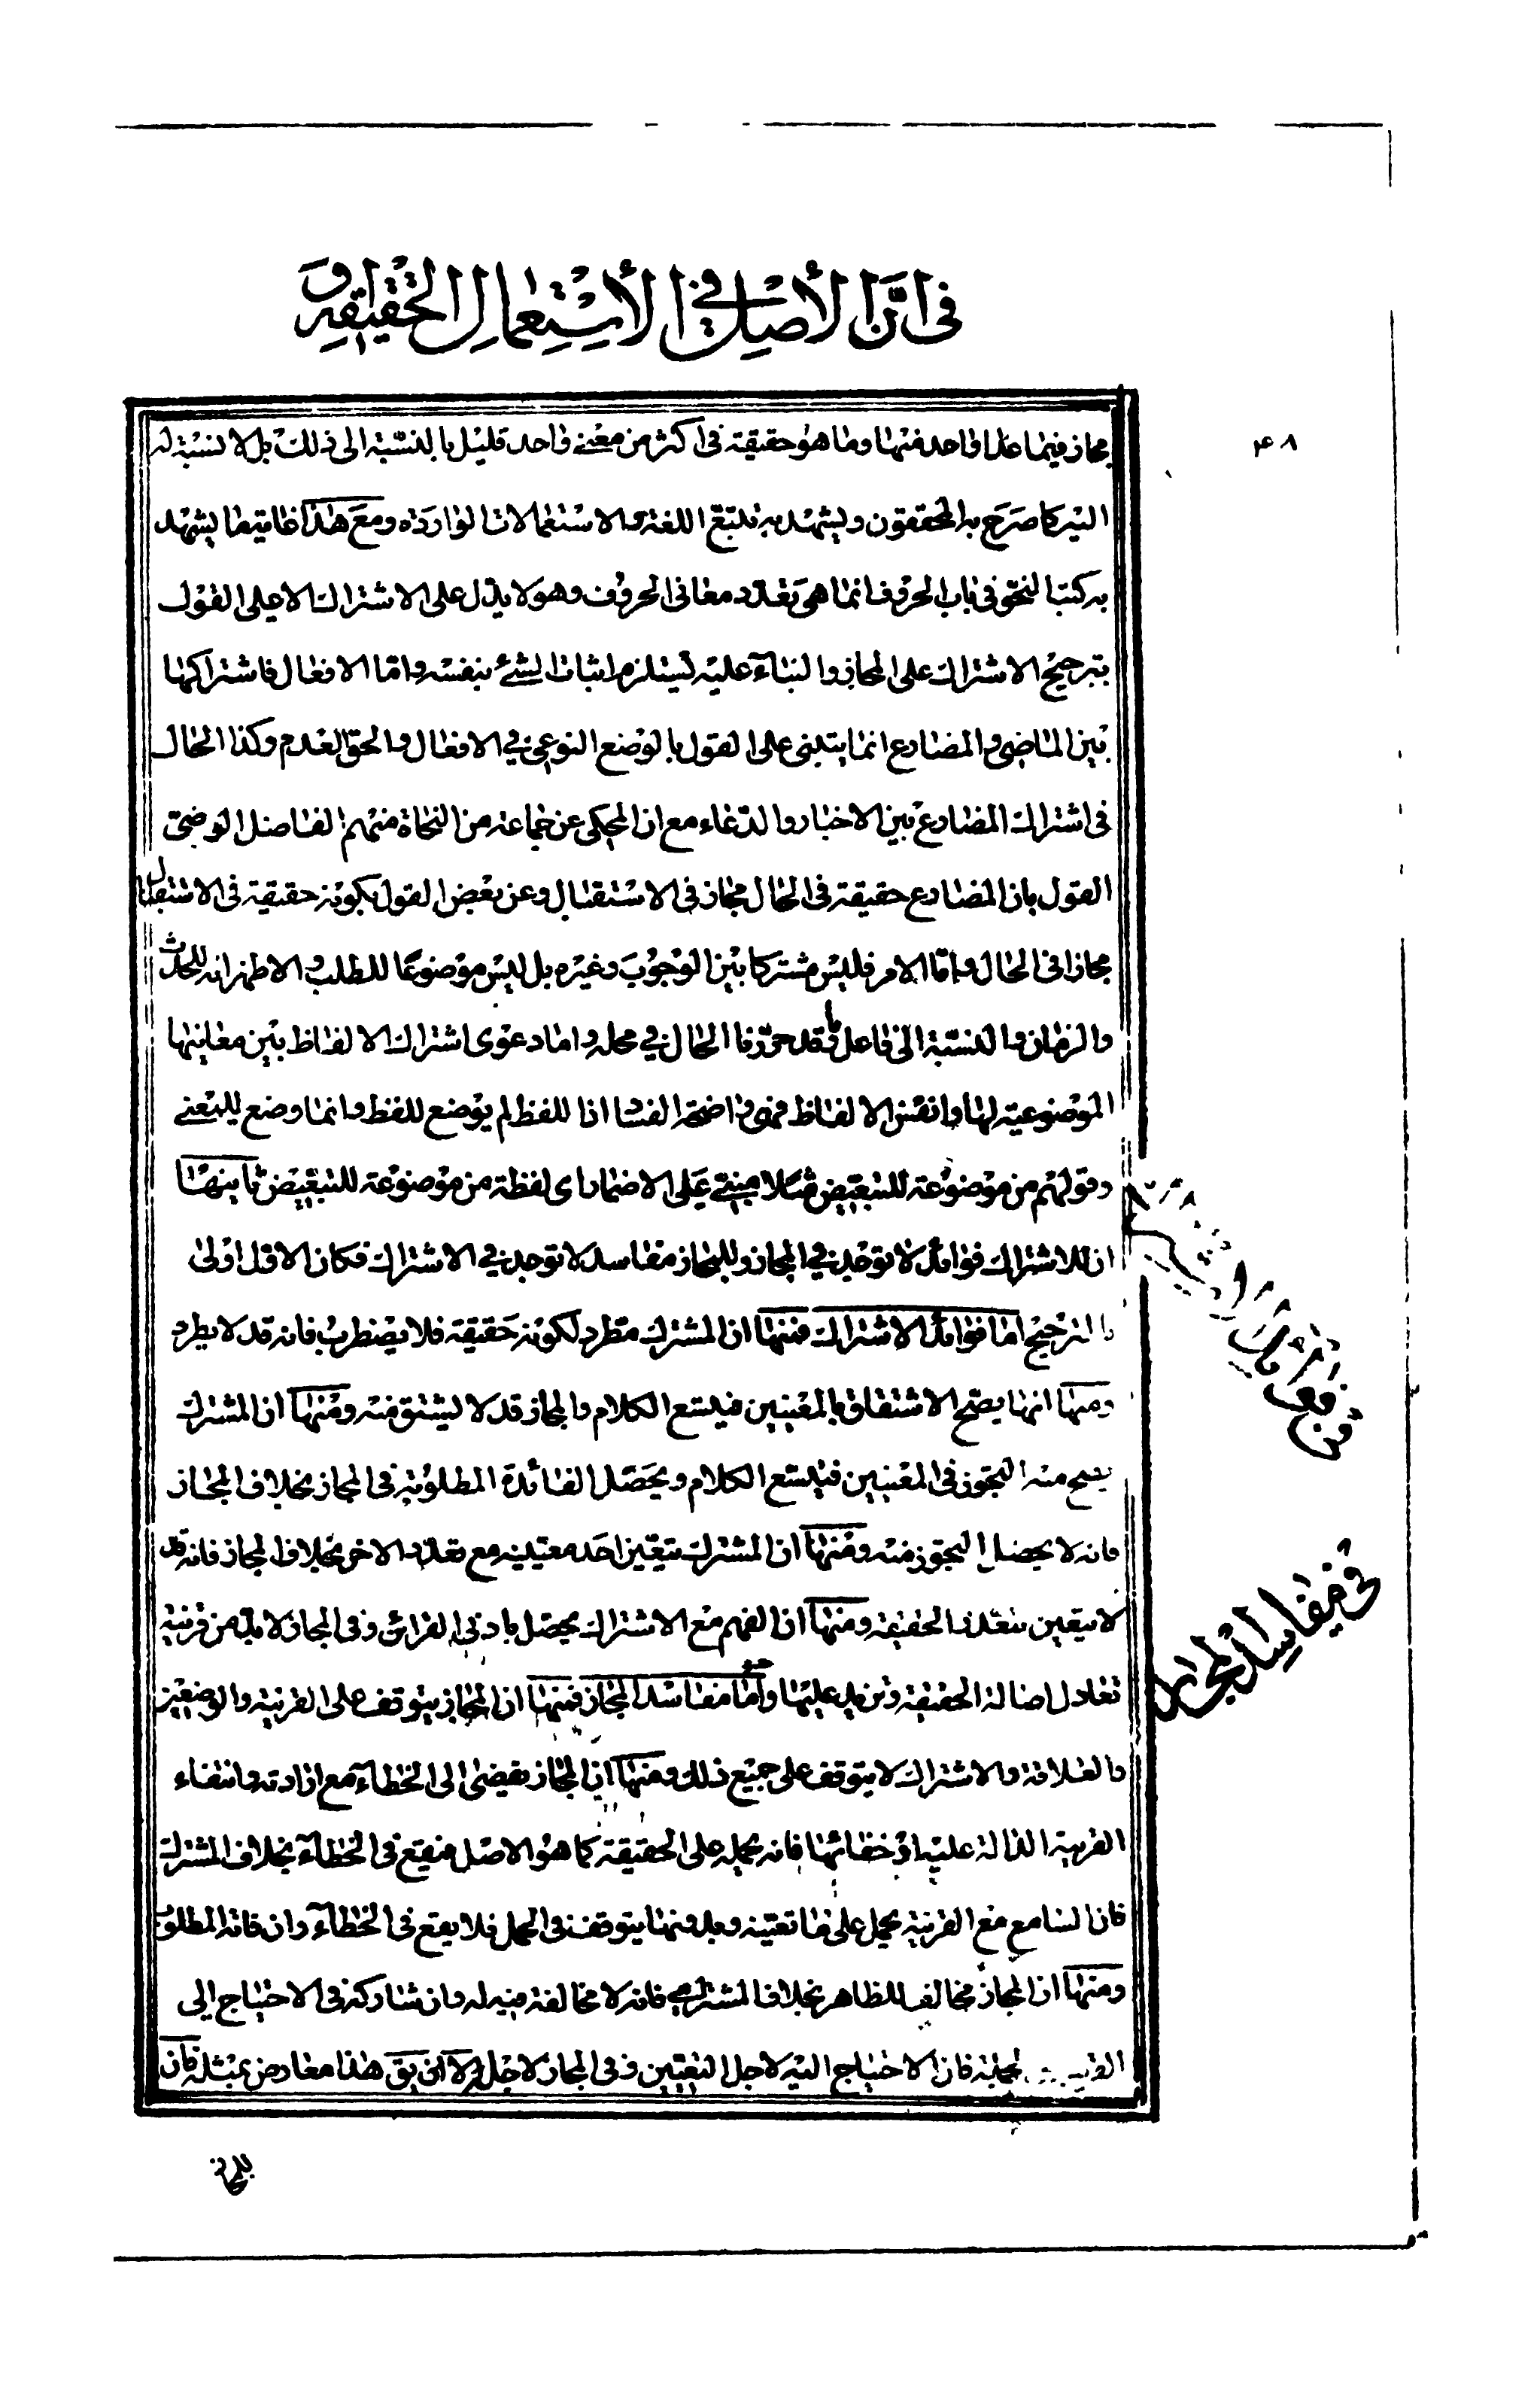 في ان الأصل في الاستعمال الحقيقة و
۴۸
مجاز فيما عدا واحد منها وما هو حقيقة في اكثر من معنى واحد قليل بالنسبة الى ذلك بل لا نسبة له
اليه كما صرح به المحققون ويشهد به تتبع اللغة والاستعمالات الواردة ومع هذا غاية ما يشهد
به كتب النحو في باب الحروف انما هي تعدد معاني الحروف وهو لا يدل على الاشتراك الا على القول
بترجيح الاشتراك على المجاز والبناء عليه يستلزم اثبات الشئ بنفسه واما الافعال فاشتراكها
بين الماضي والمضارع انما يبتنى على القول بالوضع النوعي في الافعال والحق العدم وكذا الحال
في اشتراك المضارع بين الاخبار والدعاء مع ان المحكى عن جماعة من النحاة منهم الفاضل الرضي
القول بان المضارع حقيقة في الحال مجاز في الاستقبال وعن بعض القول بكونه حقيقة في الاستقبال
مجازا في الحال واما الامر فليس مشتركا بين الوجوب وغيره بل ليس موضوعا للطلب والاظهر انه للحدث
والزمان والنسبة الى فاعل ما وقد حررنا الحال في محله واما دعوى اشتراك الالفاظ بين معانيها
الموضوعية لها وانفس الالفاظ فهي واضحة الفساد اذ اللفظ لم يوضع للفظ وانما وضع للمعنى
وقولهم من موضوعة للتبعيض مثلا مبني على الاضمار اى لفظة من موضوعة للتبعيض ثانيها
ان للاشتراك فوائد لا توجد في المجاز وللمجاز مفاسد لا توجد في الاشتراك فكان الاول اولى
بالترجيح اما فوائد الاشتراك فمنها ان المشترك مطرد لكونه حقيقة فلا يضطرب فانه قد لا يطرد
ومنها انها يصح الاشتقاق بالمعنيين فيتسع الكلام والمجاز قد لا يشتق منه ومنها ان المشترك
يصح منه التجوز في المعنيين فيتسع الكلام ويحصل الفائدة المطلوبة في المجاز بخلاف المجاز
فانه لا يحصل التجوز منه ومنها ان المشترك يتعين احد معنييه مع تعذر الاخر بخلاف المجاز فانه قد
لا يتعين بتعذر الحقيقة ومنها ان الفهم مع الاشتراك يحصل بادنى القرائن وفى المجاز لا بد من قرينة
تعادل اصالة الحقيقة وتزيد عليها واما مفاسد المجاز فمنها ان المجاز يتوقف على القرينة والوضعين
والعلاقة والاشتراك لا يتوقف على جميع ذلك ومنها ان المجاز يفضى الى الخطاء مع ارادته وانتفاء
القرينة الدالة عليه او خفائها فانه يحمله على الحقيقة كما هو الاصل فيقع في الخطاء بخلاف المشترك
فان السامع مع القرينة يحمل على ما تعينه وبدونها يتوقف في الحمل فلا يقع في الخطاء وان فاته المطلوب
ومنها ان المجاز مخالف للظاهر بخلاف المشترك فانه لا مخالفة فيه له وان شاركه في الاحتياج الى
فان الاحتياج اليه لاجل التعيين وفى المجاز لاجل لا ان يق هذا معارض بمثله فان
في مفاسد المجاز
للمجاز